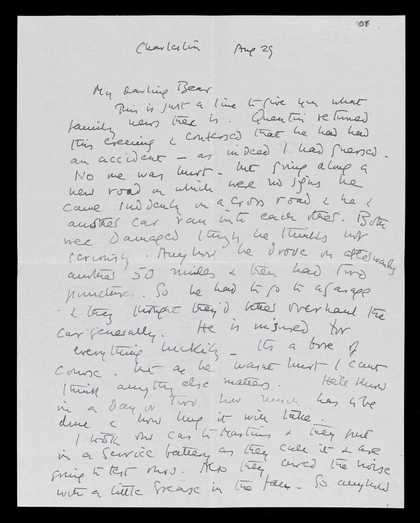 Charleston Aug 29
My darling Bear,
This is just a line to give you what
family news there is. Quentin returned
this evening & confessed that he had had
an accident – as indeed I had guessed.
No one was hurt – but going along a
new road on which were no signs he
came suddenly on a cross road & he &
another car ran into each other. Both
were damaged though he thinks not
seriously. Anyhow he drove on afterwards
another 50 miles & then had two
punctures. So he had to go to a garage
& they thought they'd better overhaul the
car generally. He is insured for
everything luckily – It's a bore of
course. but as he wasn't hurt I can't
think anything else matters. He'll know
in a day or two how much has to be
done & how long it will take.
I took our car to Martins & they put
in a service battery as they call it & are
going to test ours. Also they cured the noise
with a little grease in the fan. So anyhow